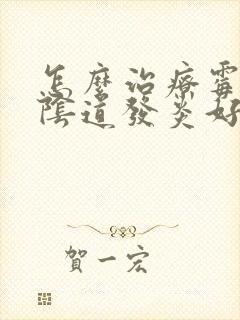 怎麼治療霉
陰道發炎好
賀一宏